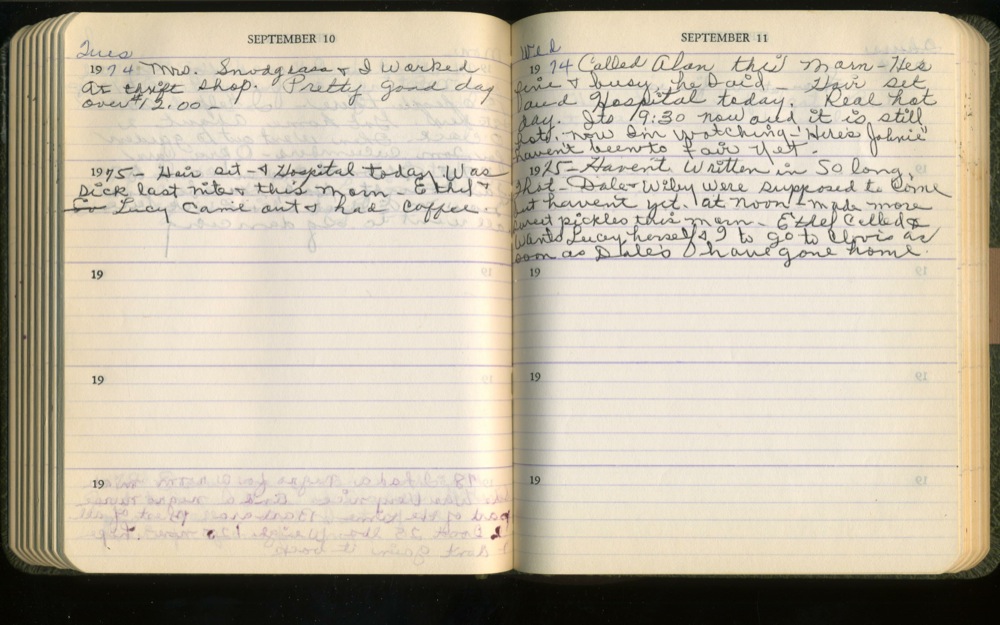 SEPTEMBER 10
Tues
1974 Mrs. Snodgrass & I worked
at thrift shop. Pretty good day
over $12.00 -
1975 - Hair set - & Hospital today. Was
sick last nite & this morn - Ethel &
Lucy came out & had coffee.
19
19
19
SEPTEMBER 11
Wed
1974 Called Alan this morn - Hes
fine & busy, he said - Hair set
and Hospital today. Real hot
day. Its 9:30 now and it is still
hot. now Im watching - "Here's Johnie"
havent been to Fair yet.
1975 - Havent written in so long,
that - Dale & Wiley were supposed to come
but havent yet. at noon - made more
sweet pickles this morn. Ethel called &
wants Lucy herself & I to go to Clovis as
soon as Dale's have gone home.
19
19
19